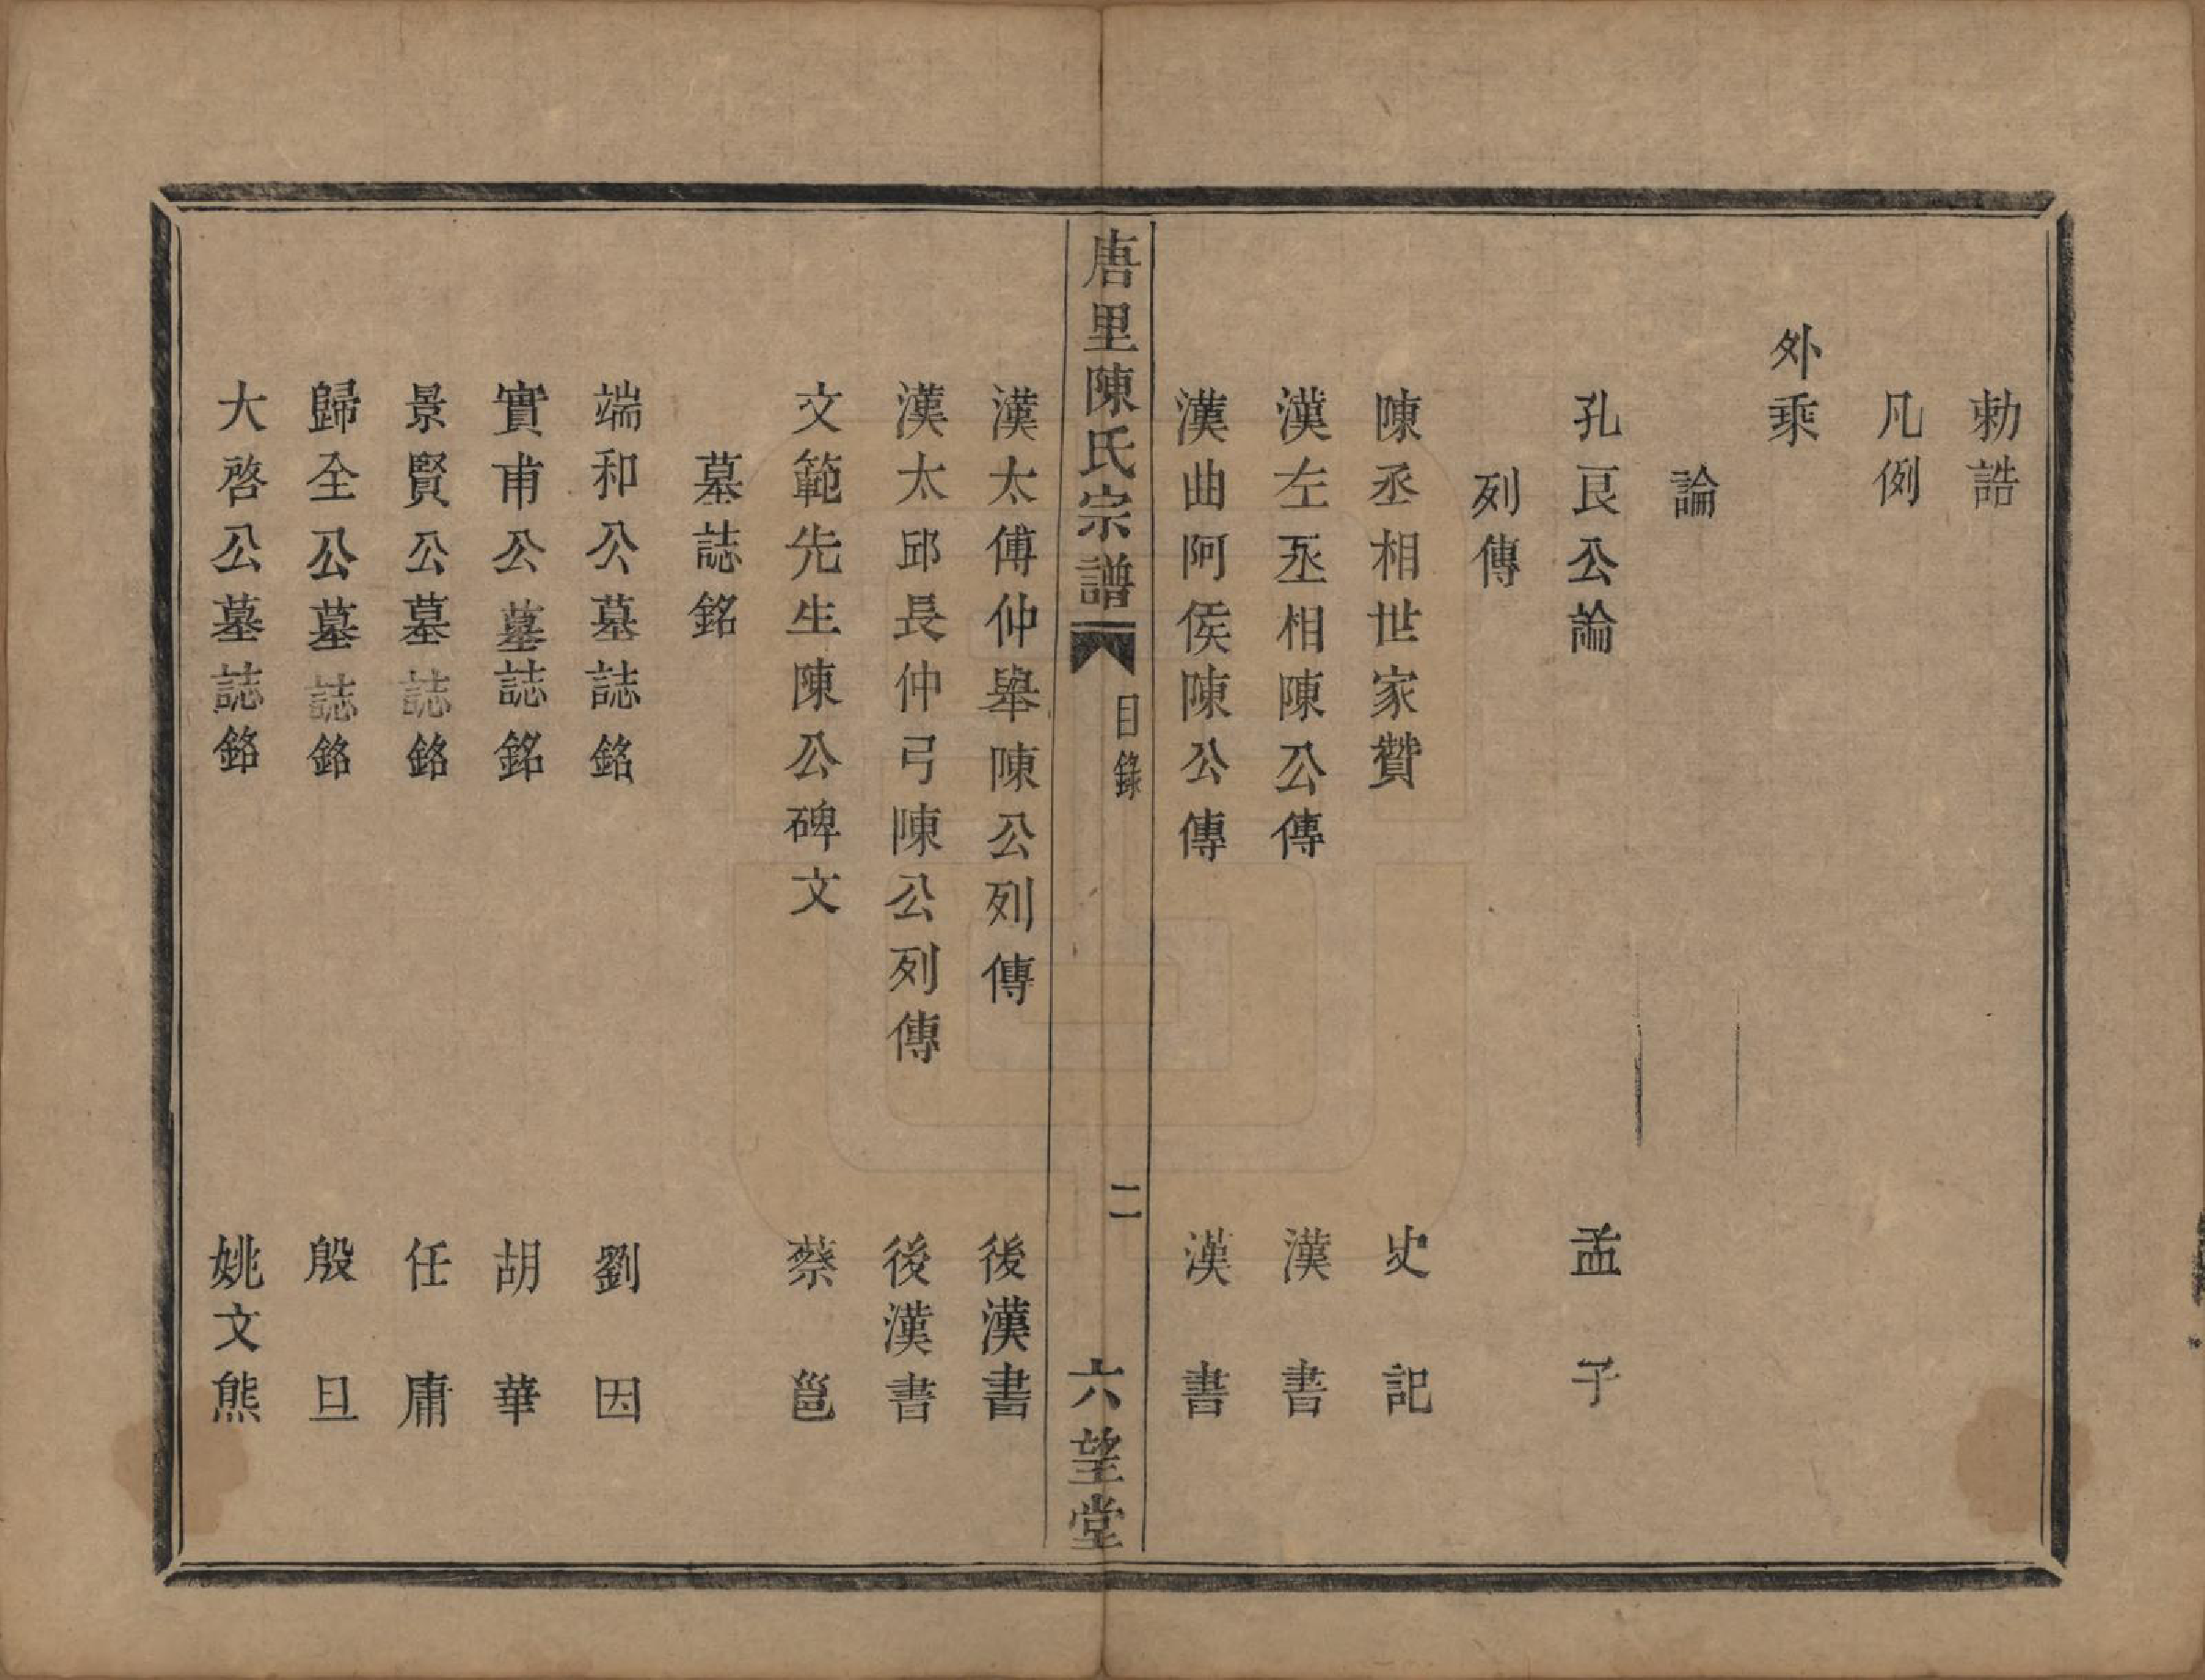 勅誥
凡例
外乘
論
孔艮公論 孟子
列傳
陳丞相世家贊 史記
漢左丞相陳公傳 漢書
漢曲阿侯陳公傳 漢書
唐里陳氏宗譜 目錄 二 六望堂
漢太傅仲舉陳公列傳 後漢書
漢太邱長仲弓陳公列傳 後漢書
文範先生陳公碑文 蔡邕
墓誌銘
端和公墓誌銘 劉因
實甫公墓誌銘 胡華
景賢公墓誌銘 任庸
歸全公墓誌銘 殷旦
大啓公墓誌銘 姚文熊